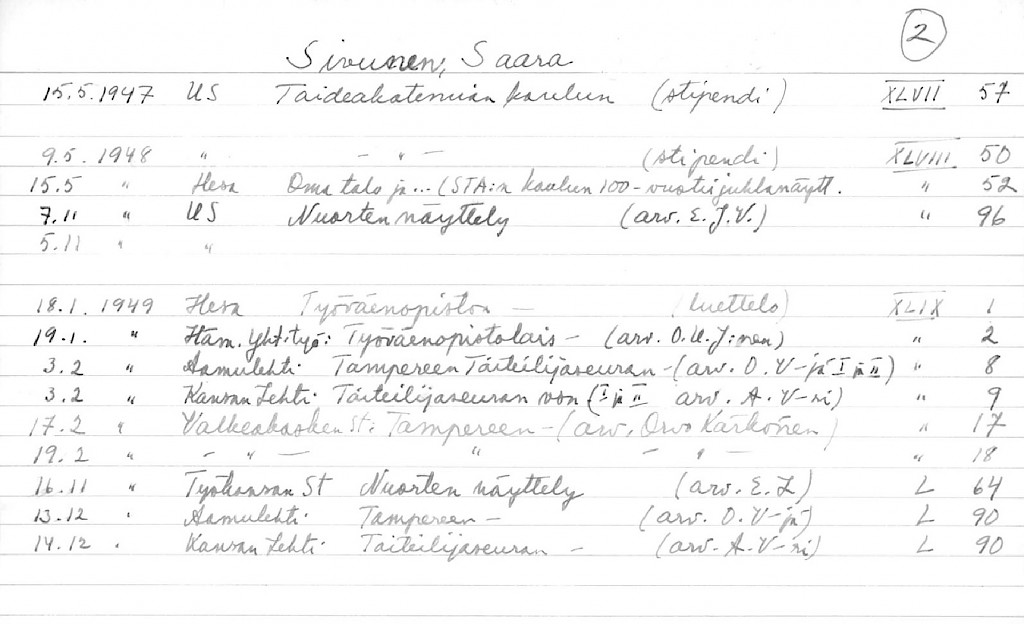 2
Sivunen, Saara
15.5.1947 US Taideakatemian koulun (stipendi) XLVII 57
9.5. 1948 " - " - (stipendi) XLVIII 50
15.5 " Hesa Oma talo ja... (STA:n koulun 100-vuotisjuhlanäytt. " 52
7.11 " US Nuorten näyttely (arv. E.J.V.) " 96
5.11 " "
18.1. 1949 Hesa Työväenopiston - (luettelo) XLIX 1
19.1. " Häm. Yht.työ: Työväenopistolais - (arv. O.U.J:nen) " 2
3.2 " Aamulehti Tampereen Taiteilijaseuran - (arv. O. V-jä I ja II) " 8
3.2 " Kansan Lehti Taiteilijaseuran von (I ja II arv. A. V-ri) " 9
17.2 " Valkeakosken St: Tampereen - (arv. Orvo Kärkönen) " 17
19.2 " - " - " - " - " 18
16.11 " Työkansan St Nuorten näyttely (arv. E. L) L 64
13.12 " Aamulehti Tampereen - (arv. O. V-jä) L 90
14.12 " Kansan Lehti Taiteilijaseuran - (arv. A. V-ri) L 90